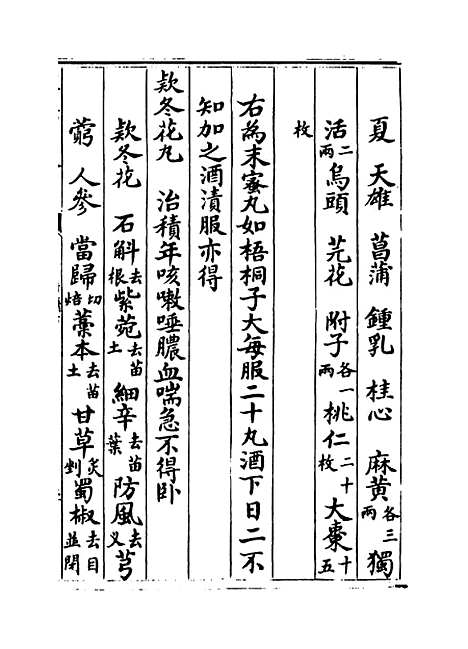 夏 天雄 菖蒲 鍾乳 桂心 麻黄各三兩 獨
活二兩 烏頭 芫花 附子各一兩 桃仁二十枚 大棗十五
枚
右為末蜜丸如梧桐子大每服二十丸酒下日二不
知加之酒漬服亦得
欵冬花丸 治積年咳嗽唾膿血喘急不得卧
欵冬花 石斛去根 紫菀去苗土 細辛去苗葉 防風去义 芎
藭 人參 當歸切焙 藁本去苗土 甘草炙剉 蜀椒去目並閉